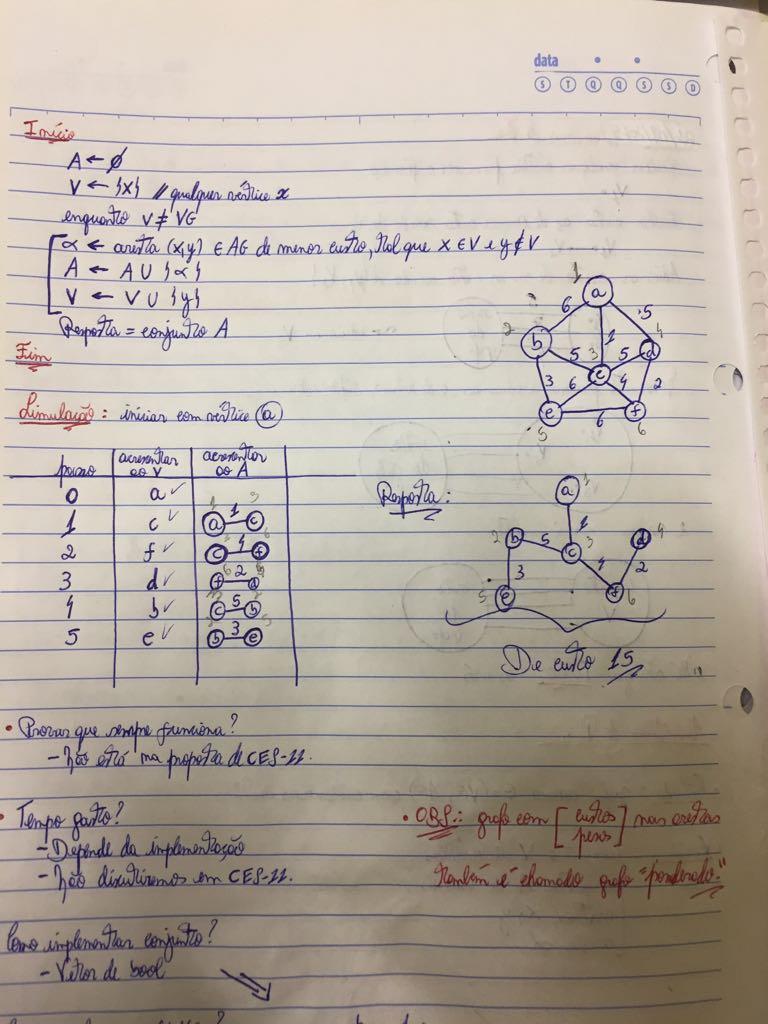 data
S T Q Q S S D
Início
A ← ∅
V ← {x} // qualquer vértice x
enquanto V ≠ VG
α ← aresta (x,y) ∈ AG de menor custo, tal que x ∈ V e y ∉ V
A ← A ∪ {α}
V ← V ∪ {y}
Resposta = conjunto A
Fim
1
a
6 1 5
2 b 5 3 c 5 d 4
3 6 4 2
5 e 6 f 6
Simulação: iniciar com vértice a
passo acrescentar ao V acrescentar ao A
0 a ✓
1 c ✓ a 1 c
2 f ✓ c 4 f
3 d ✓ f 2 d
4 b ✓ c 5 b
5 e ✓ b 3 e
Resposta:
a 1
1
2 b 5 c 3 d 4
3 4 2
5 e f 6
De custo 15
• Provas que sempre funciona?
- Não está na proposta de CES-11.
• Tempo gasto?
- Depende da implementação
- Não discutiremos em CES-11.
• OBS.: grafo com [custos pesos] nas arestas
também é chamado grafo "ponderado."
Como implementar conjunto?
- Vetor de bool